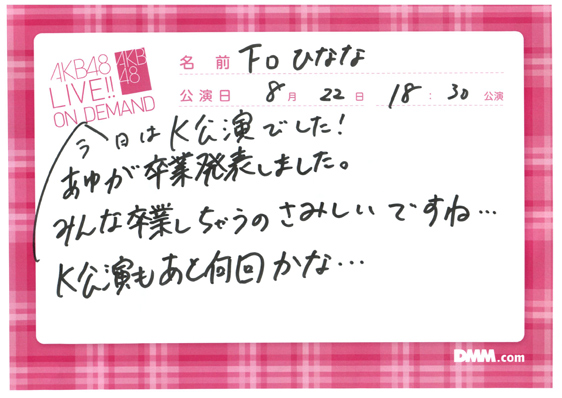 AKB48
LIVE!!
ON DEMAND
AKB
48
名前 下口ひなな
公演日 8月 22日 18:30 公演
今日はK公演でした!
あゆが卒業発表しました。
みんな卒業しちゃうのさみしいですね…
K公演もあと何回かな…
DMM.com